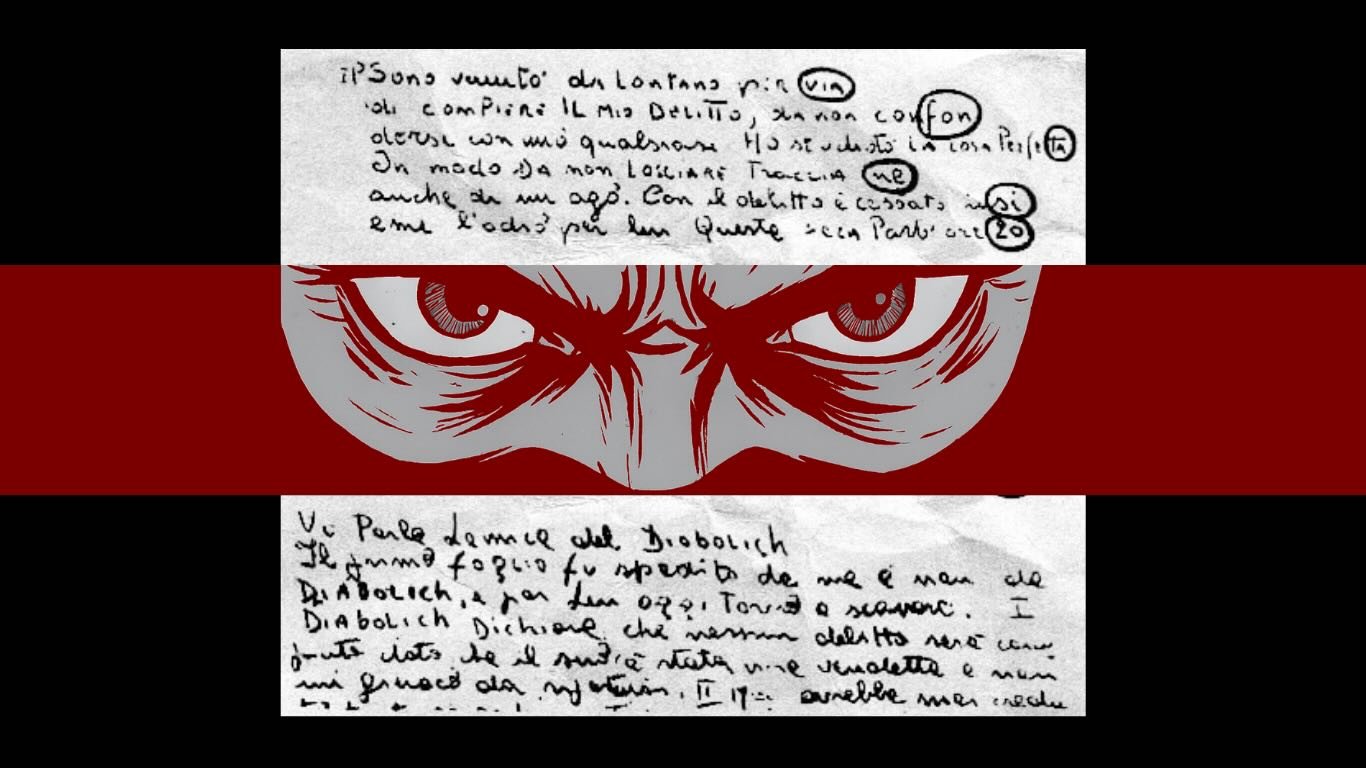 Sono venuto da Lontano per via
di compiere IL mio Delitto, da non confon
dersi con uno qualsiasi Ho studiato la cosa Perfetta
In modo Da non Losciare Traccia ne
anche di un ago. Con il delitto è cessato insi
eme l'odio per lui Queste sera Partirò 20
Vi Parla Lamica del Diabolich
Il primo foglio fu spedito da me e non da
DIABOLICH, e per Lui oggi Torno a scavarci. I
DIABOLICH Dichiara che nessun delitto serà
dato che il suo è stata una vendetta e non
un giuoco da II avrebbe mai credu